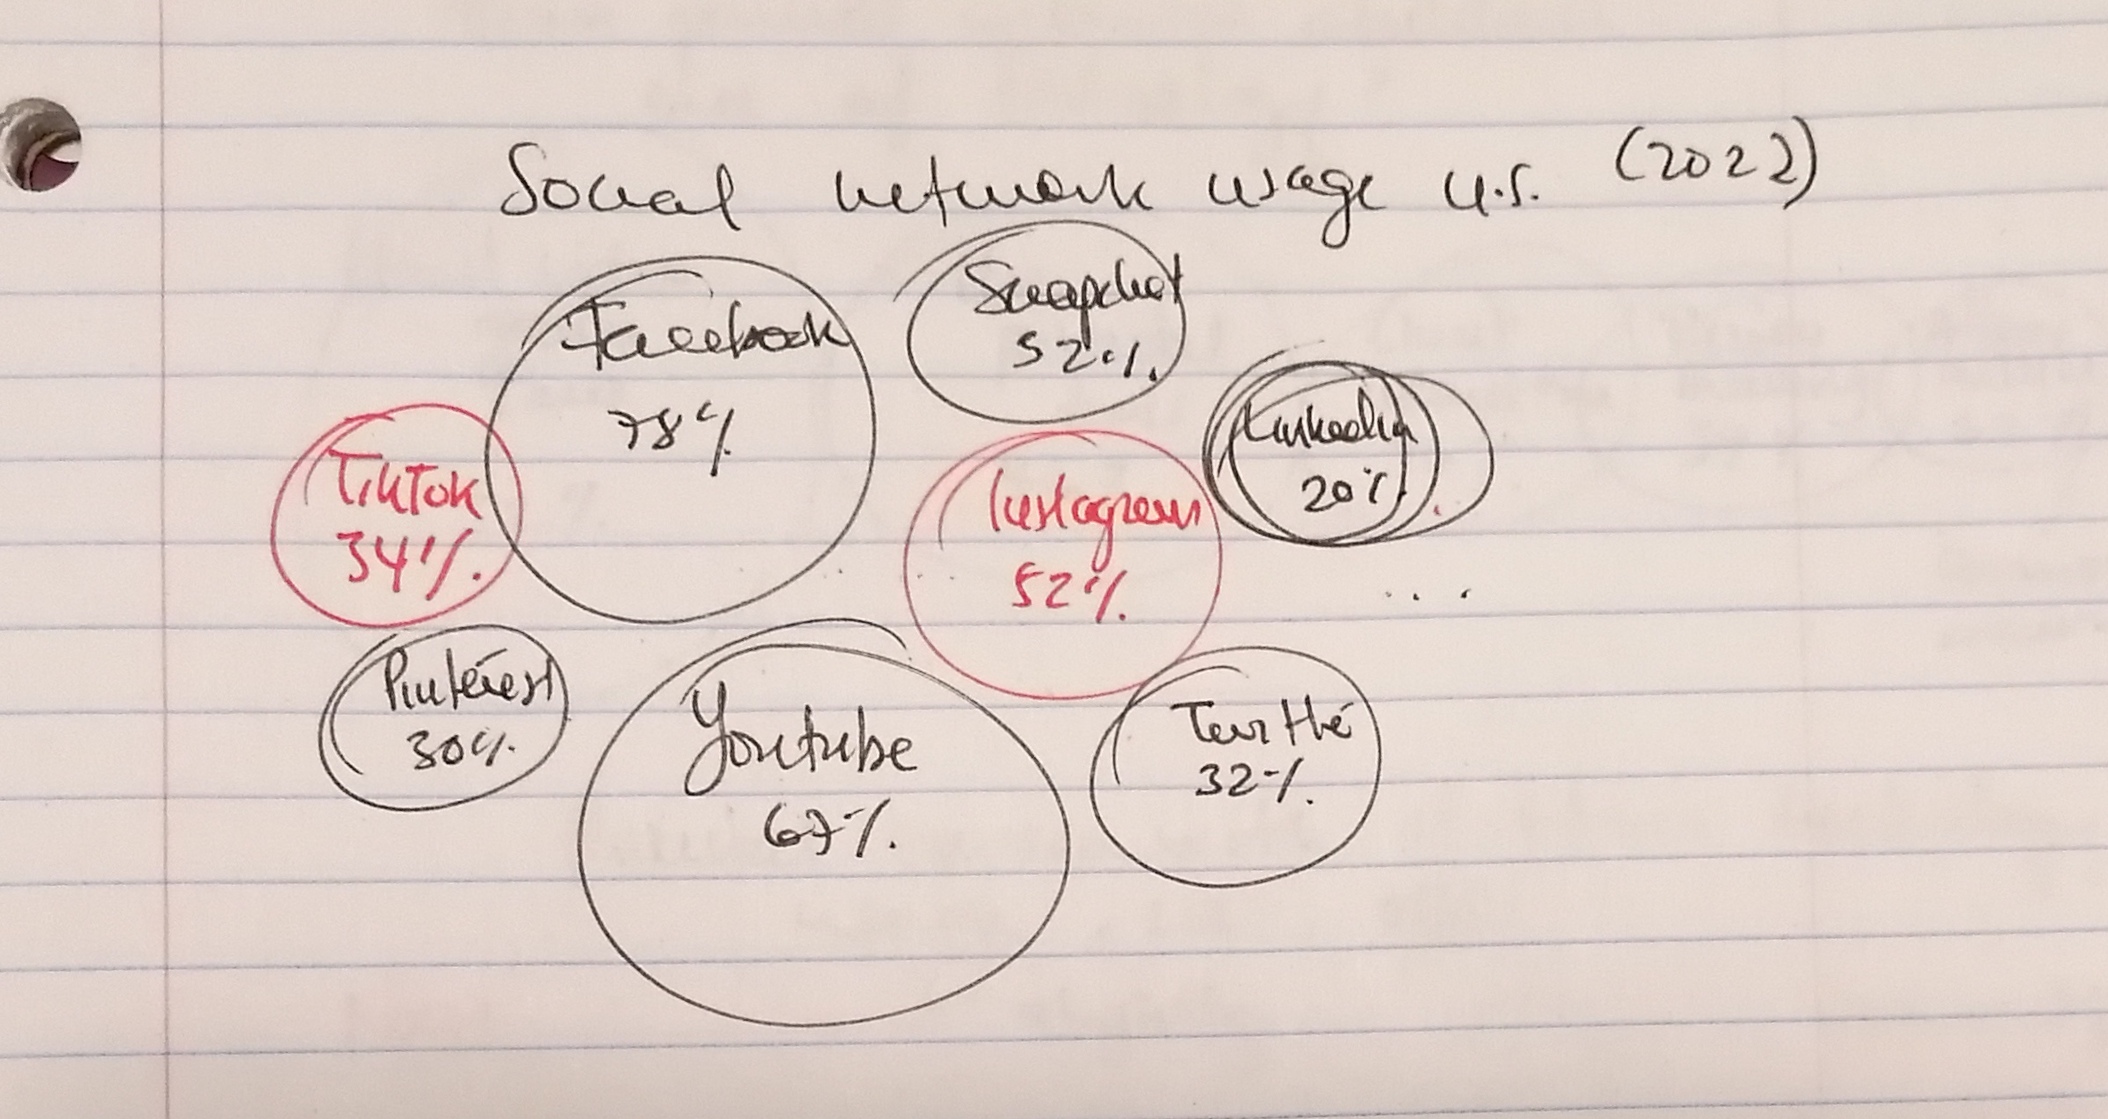 Social network usage U.S. (2022)
Facebook
78%
Snapchat
52%.
LinkedIn
20%.
TikTok
34%.
Instagram
52%.
...
Pinterest
30%.
Youtube
67%.
Twitter
32%.